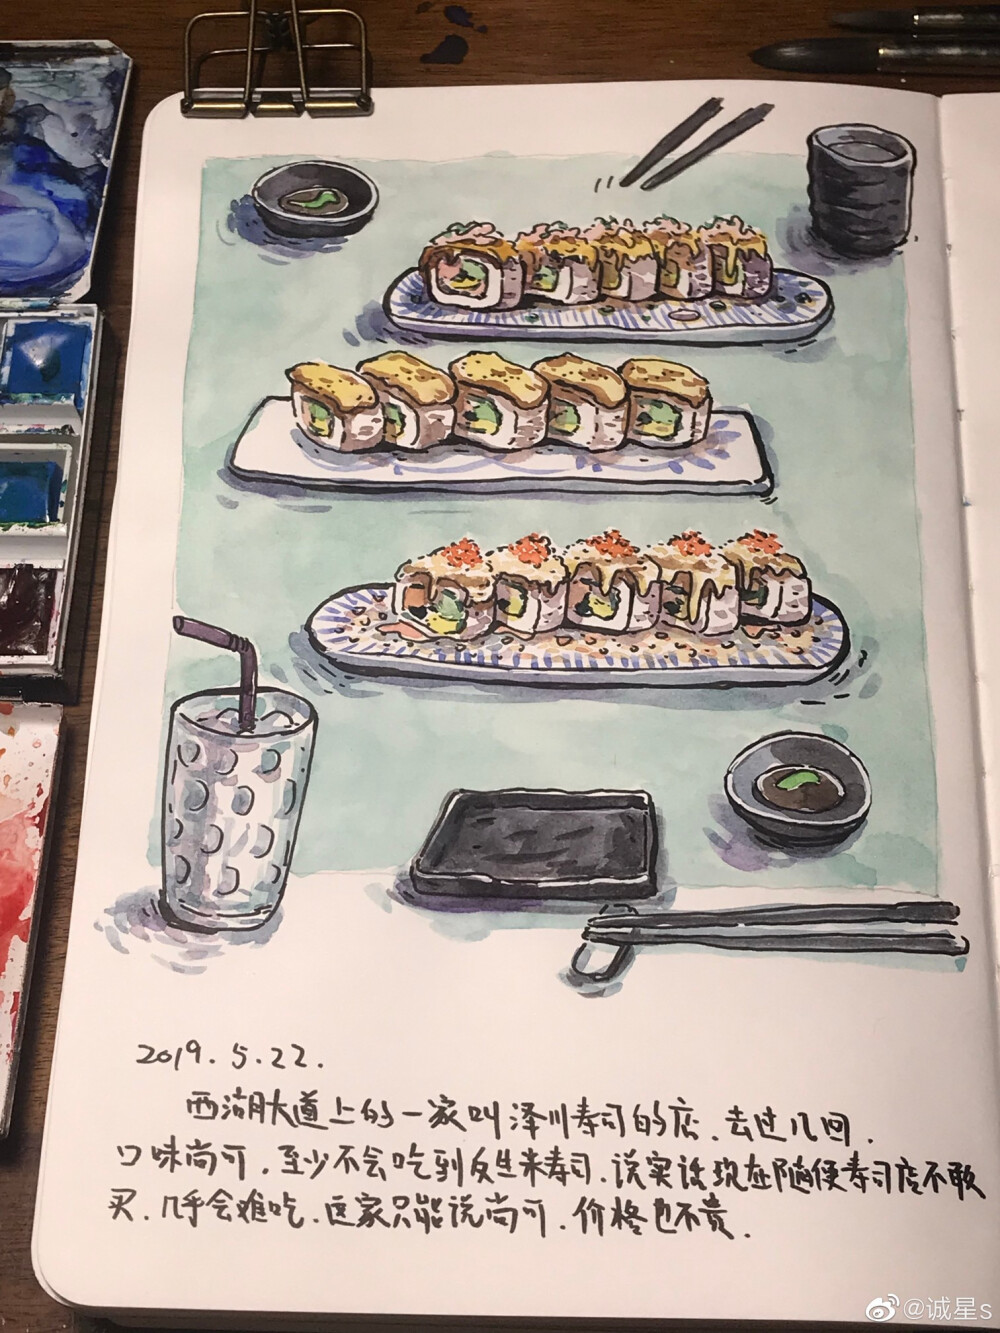 2019.5.22.
西湖大道上的一家叫泽川寿司的店、去过几回.
口味尚可、至少不会吃到夹生米寿司、说实话现在随便寿司店不敢
买、几乎会难吃、这家只能说尚可、价格也不贵、
@诚星s